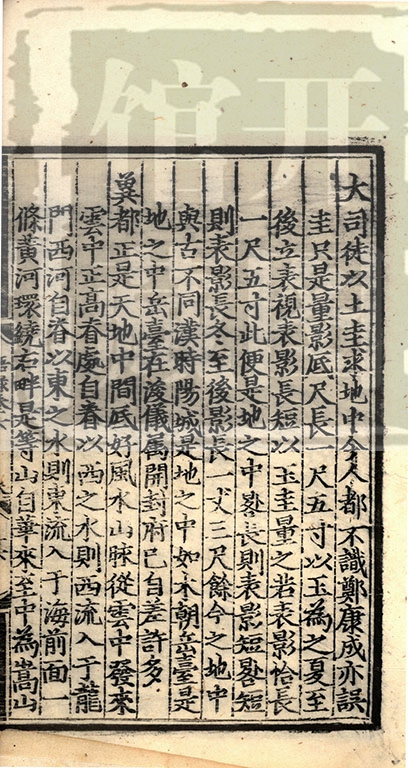 大司徒以土圭求地中今人都不識鄭康成亦誤
圭只是量影底尺長一尺五寸以玉為之夏至
後立表視表影長短以玉圭量之若表影恰長
一尺五寸此便是地之中晷長則表影短晷短
則表影長冬至後影長一丈三尺餘今之地中
與古不同漢時陽城是地之中如本朝岳臺是
地之中岳臺在浚儀屬開封府已自差許多
冀都正是天地中間底好風水山脉從雲中發來
雲中正高脊處自脊以西之水則西流入于龍
門西河自脊以東之水則東流入于海前面一
條黃河環繞右畔是華山自華來至中為嵩山